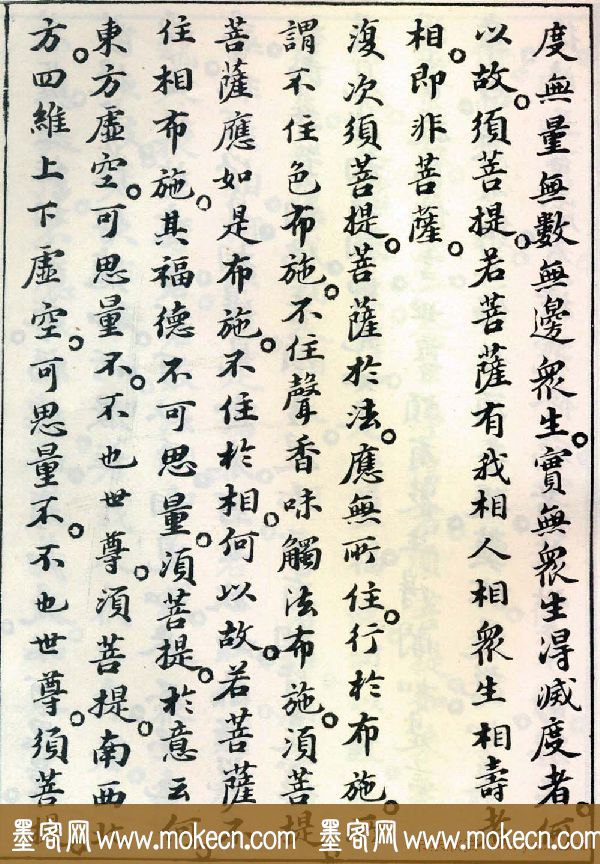 度無量無數無邊衆生。實無衆生得滅度者。何
以故。須菩提。若菩薩有我相人相衆生相壽者
相。即非菩薩。
復次須菩提。菩薩於法。應無所住。行於布施。
謂不住色布施。不住聲香味觸法布施。須菩提
菩薩應如是布施。不住於相。何以故。若菩薩不
住相布施。其福德不可思量。須菩提。於意云何
東方虛空。可思量不。不也世尊。須菩提。南西北
方四維上下虛空。可思量不。不也世尊。須菩提
墨客网 www.mokecn.com 墨客网 www.mokecn.com